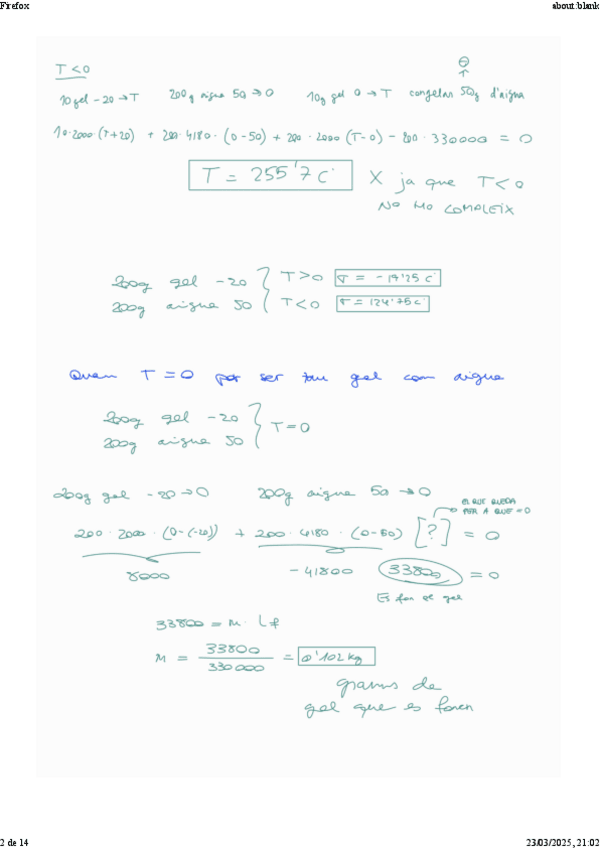 Firefox about:blank
T<0
10 gel -20→T 200g aigua 50→0 10g gel 0→T congelar 50g d'aigua
⊖
↑
10·2000·(T+20) + 200·4180·(0-50) + 200·2000(T-0) - 200·330000 = 0
T = 255'7 C X ja que T<0
NO HO COMPLEIX
200g gel -20 T>0 T = -17'25 C
200g aigua 50 T<0 T = 124'75 C
Quan T=0 pot ser tan gel com aigua
200g gel -20
200g aigua 50 T=0
200g gel -20→0 200g aigua 50→0
EL QUE QUEDA
PER A QUE =0
200·2000·(0-(-20)) + 200·4180·(0-50) [?] = 0
8000 -41800 33800 = 0
Es fon el gel
33800 = M · Lf
M = 33800 / 330000 = 0'102 kg
grams de
gel que es fonen
2 de 14 23/03/2025, 21:02